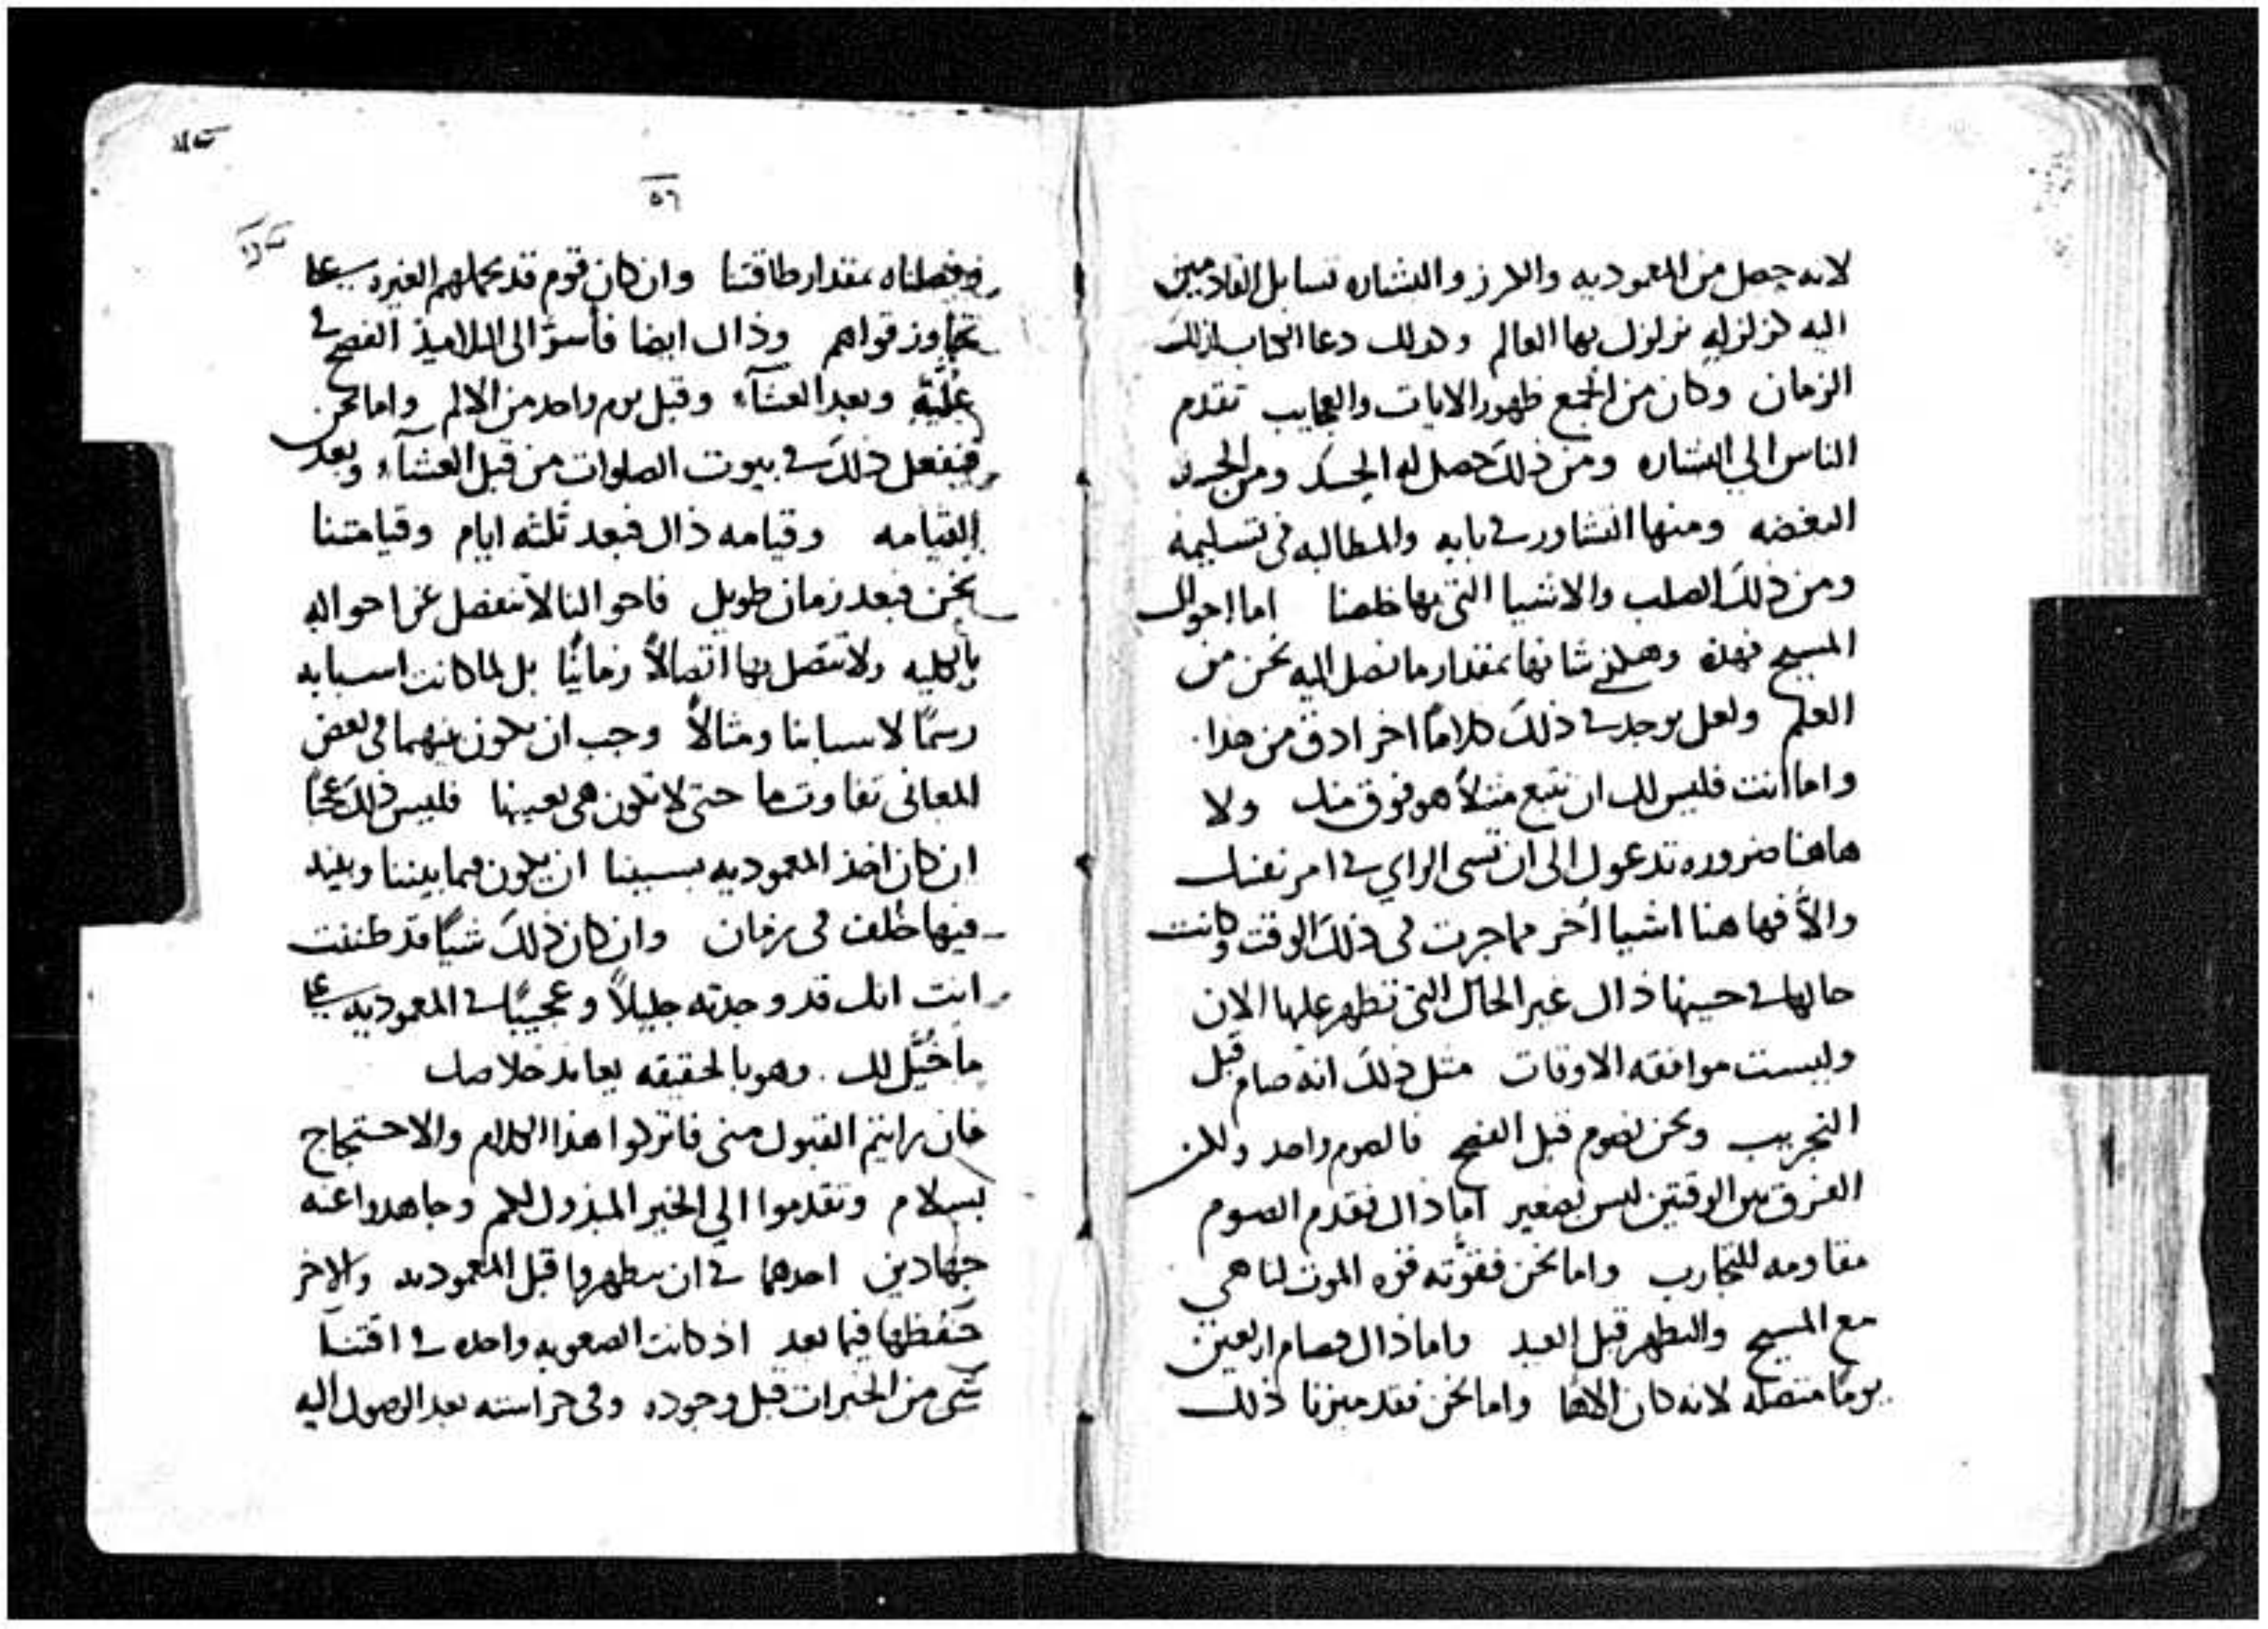 لانه حصل من المعموديه والكرز والبشاره تسابل القادمين
اليه كزلزله تزلزل بها العالم وكدلك دعا الكتاب ذلك
الزمان وكان من الجمع ظهور الايات والعجايب تقدم
الناس الي البشاره ومن ذلك حصل له الحسد ومن الحسد
البغضه ومنها التشاور في بابه والمطالبه في تسليمه
ومن ذلك الصلب والاشيا التي بها خلصنا اما احوال
المسيح فهذه وهكذي شانها بمقدار ما نصل اليه نحن من
العلم ولعل يوجد في ذلك كلاماً اخر ادق من هذا
واما انت فليس لك ان تتبع مثلاً هو فوق منك ولا
هاهنا ضروره تدعوك الى ان تسي الراي في امر نفسك
والاّ فها هنا اشيا اخر مما جرت في ذلك الوقت وكانت
حالها في حينها ذاك غير الحال التي تظهر عليها الان
وليست موافقه الاوقات مثل ذلك انه صام قبل
التجريب ونحن نصوم قبل الفصح فالصوم واحد ولكن
الفرق بين الوقتين ليس بصغير اما ذاك فقدم الصوم
مقاومه للتجارب واما نحن فقوّته قوه الموت لنا هي
مع المسيح والتطهر قبل العيد واما ذاك فصام اربعين
يوماً متصله لانه كان الاهاً واما نحن فقد ميزنا ذلك
٥٦
وفصلناه بمقدار طاقتنا وان كان قوم قد تحملهم الغيره على
تجاوز قواهم وذاك ايضا فأسرّ الى التلاميذ الفصح في
عُليّة وبعد العشآء وقبل يوم واحد من الالم واما نحن
فنفعل ذلك في بيوت الصلوات من قبل العشآء وبعد
القيامه وقيامه ذاك فبعد ثلثه ايام وقيامتنا
نحن فبعد زمان طويل فاحوالنا لا تنفصل عن احواله
بالكليه ولا تتصل بها اتصالاً زمانيّاً بل لما كانت اسبابه
رسمًا لاسبابنا ومثالاً وجب ان يكون بينهما في بعض
المعاني تفاوت ما حتى لا تكون هي بعينها فليس ذلك عجباً
ان كان اخذ المعموديه بسببنا ان يكون فيما بيننا وبينه
فيها خلف في زمان وان كان ذلك شيًا قد ظننت
انت انك قد وجدته جليلاً وعجيبًا في المعموديه على
ما خُيّل لك . وهو بالحقيقه يعاند خلاصك
فان رايتم القبول مني فاتركوا هذا الكلام والاحتجاج
بسلام وتقدموا الي الخير المبذول لكم وجاهدوا عنه
جهادين احدهما في ان تتطهروا قبل المعموديه والاخر
حفظها فيما بعد اذ كانت الصعوبه واحده في اقتنآ
شي من الخيرات قبل وجوده وفي حراسته بعد الوصول اليه